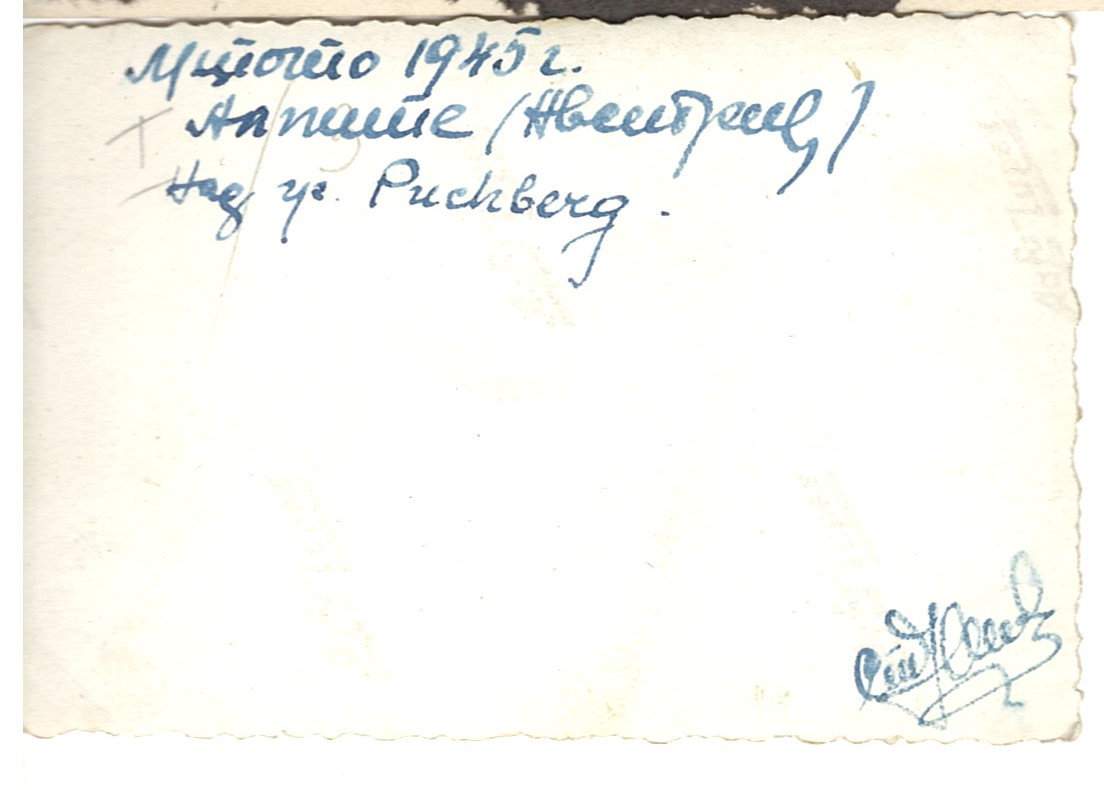 Лятото 1945 г.
Алпите (Австрия)
Над гр. Puchberg.